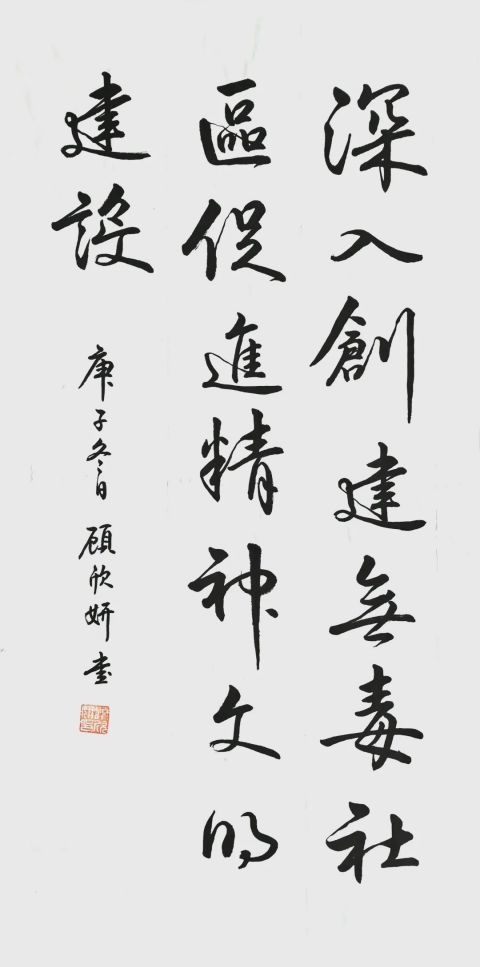 深入創建無毒社
區促進精神文明
建設
庚子冬日 顧欣妍書